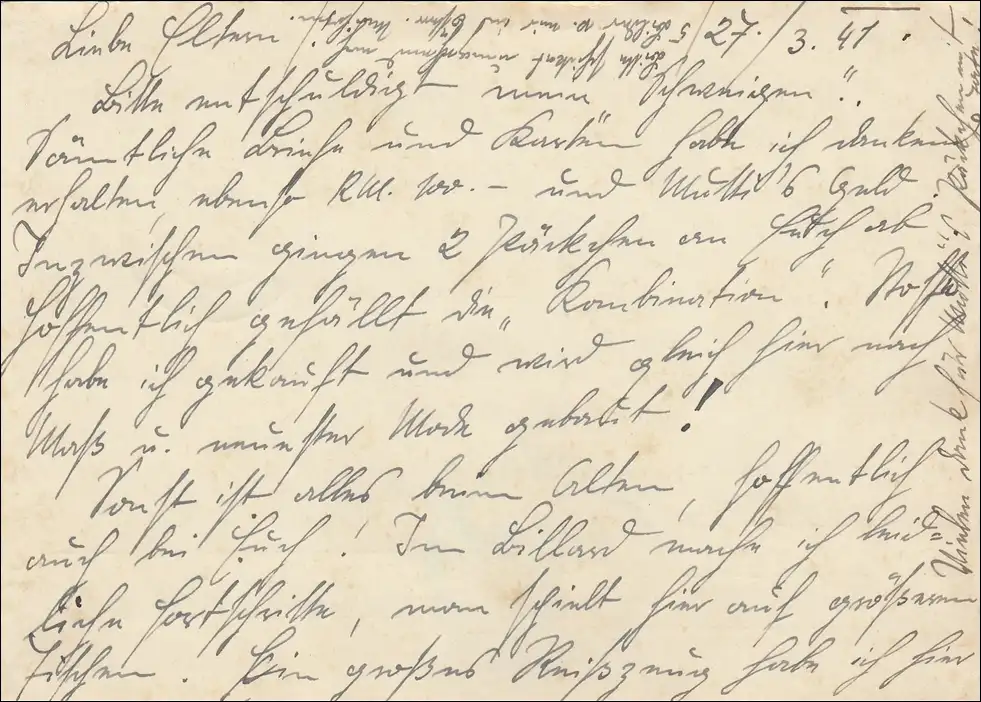 Liebe Eltern! 27./3. 41.
Bitte entschuldigt mein "Schweigen".
Sämtliche Briefe und Karten habe ich dankend
erhalten, ebenso RM. 100.- und Mutti's Geld.
Inzwischen gingen 2 Päckchen an Euch ab
Hoffentlich gefällt die "Kombination". Stoff
habe ich gekauft und wird gleich hier nach
Maß u. neuester Mode gebaut!
Sonst ist alles beim Alten, hoffentlich
auch bei Euch! Im Billard mache ich leid=
liche Fortschritte, man spielt hier auf größeren
Tischen. Ein großes Reißzeug habe ich hier
Bitte schickt
5 Bilder v. mir in
Vielen Dank für Päckchen mit